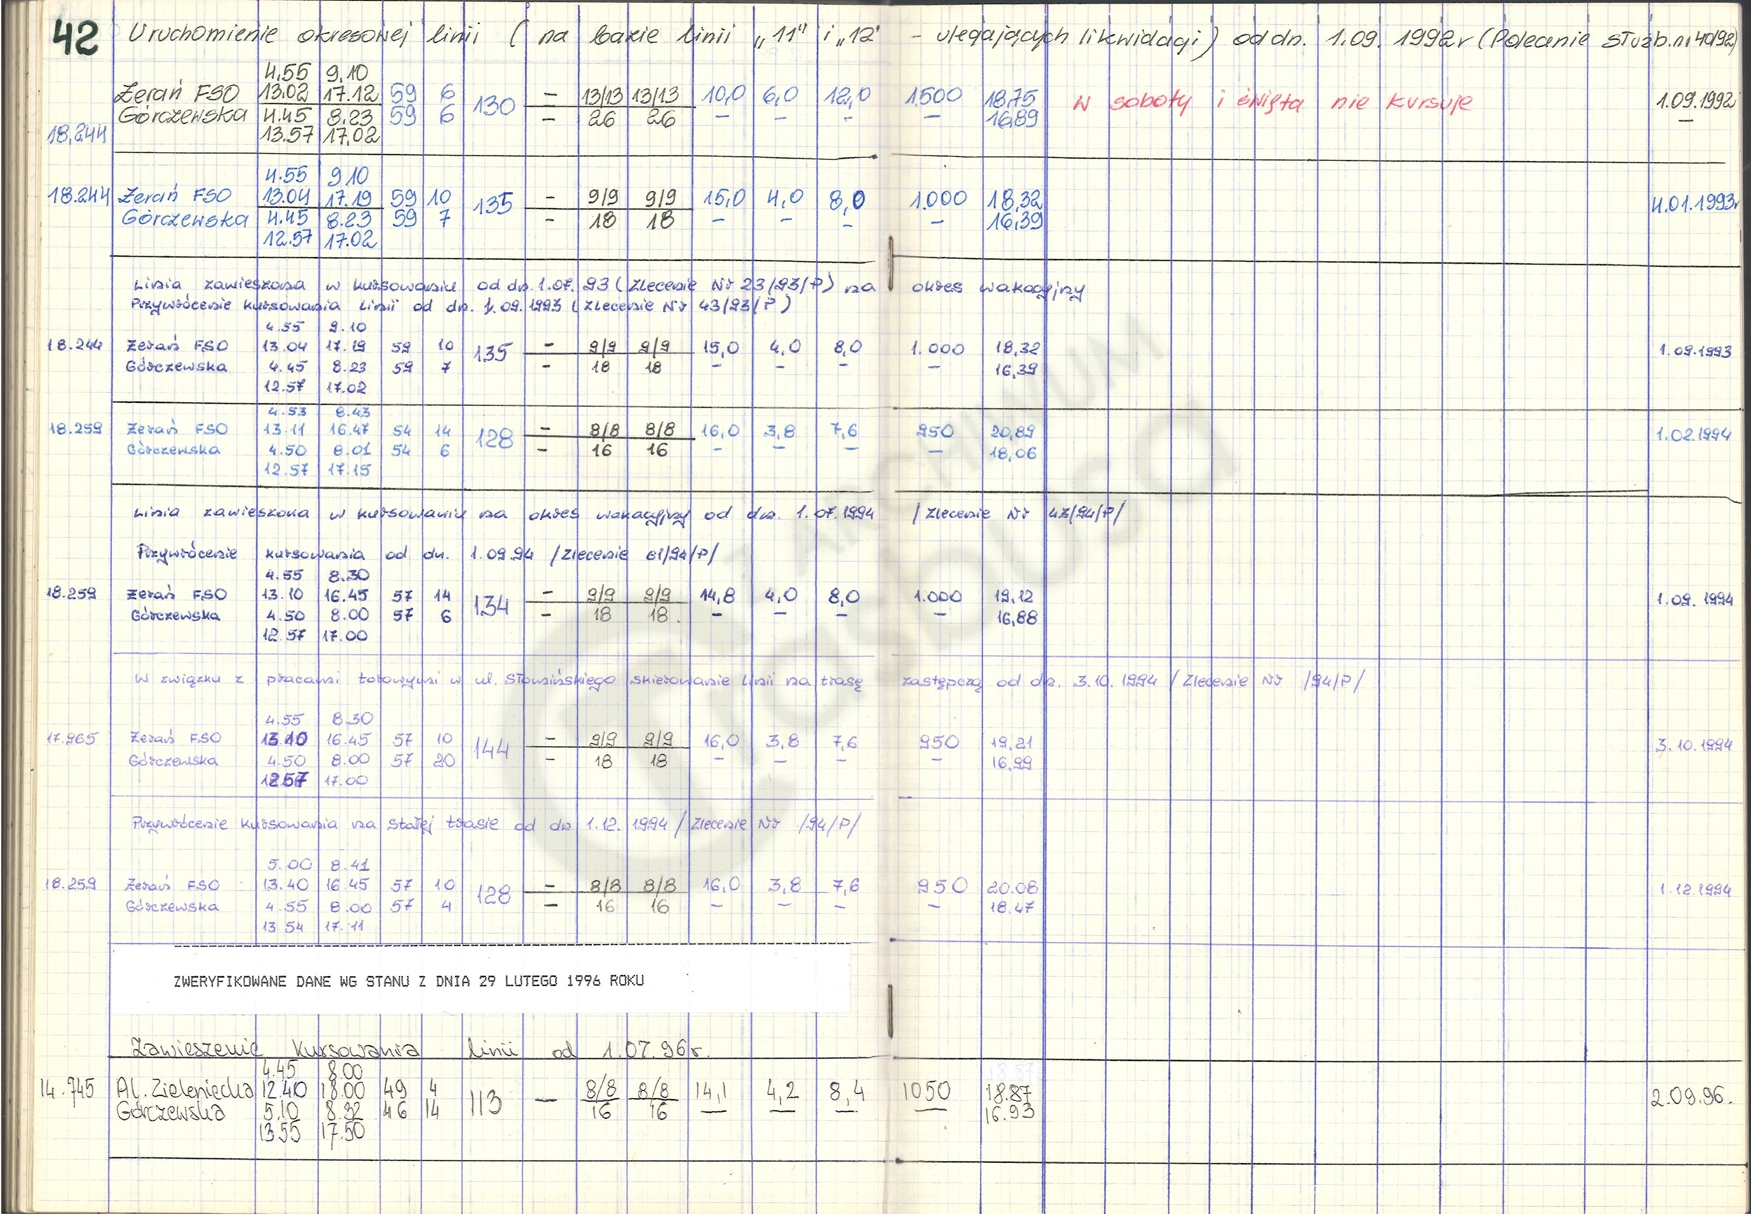 42 Uruchomienie okresowej linii ( na bazie linii „11" i „12" – ulegających likwidacji ) od dn. 1.09. 1992 r ( Polecenie służb. nr 40/92)
4.55 9.10
Żerań FSO 13.02 17.12 59 6 130 – 13/13 13/13 10,0 6,0 12,0 1.500 18,75 w soboty i święta nie kursuje 1.09.1992
Górczewska 4.45 8.23 59 6 – 26 26 – – – – 16,89 –
18,244 13.57 17.02
4.55 9.10
18.244 Żerań FSO 13.04 17.19 59 10 135 – 9/9 9/9 15,0 4,0 8,0 1.000 18,32 4.01.1993r
Górczewska 4.45 8.23 59 7 – 18 18 – – – – 16,39
12.57 17.02
Linia zawieszona w kursowaniu od dn. 1.07. 93 ( Zlecenie Nr 23/93/P ) na okres wakacyjny
Przywrócenie kursowania linii od dn. 1.09.1993 ( Zlecenie Nr 43/93/P )
4.55 9.10
18.244 Żerań FSO 13.04 17.19 59 10 135 – 9/9 9/9 15,0 4,0 8,0 1.000 18,32 1.09.1993
Górczewska 4.45 8.23 59 7 – 18 18 – – – – 16,39
12.57 17.02
4.53 8.43
18.259 Żerań FSO 13.11 16.47 54 14 128 – 8/8 8/8 16,0 3,8 7,6 950 20,89 1.02.1994
Górczewska 4.50 8.01 54 6 – 16 16 – – – – 18,06
12.57 17.15
Linia zawieszona w kursowaniu na okres wakacyjny od dn. 1.07.1994 / Zlecenie Nr 43/94/P/
Przywrócenie kursowania od dn. 1.09.94 / Zlecenie 61/94/P/
4.55 8.30
18.259 Żerań FSO 13.10 16.45 57 14 134 – 9/9 9/9 14,8 4,0 8,0 1.000 19,12 1.09.1994
Górczewska 4.50 8.00 57 6 – 18 18. – – – – 16,88
12.57 17.00
W związku z pracami torowymi w ul. Słomińskiego skierowanie linii na trasę zastępczą od dn. 3.10.1994 / Zlecenie Nr /94/P/
4.55 8.30
17.965 Żerań FSO 13.10 16.45 57 10 144 – 9/9 9/9 16,0 3,8 7,6 950 19,21 3.10.1994
Górczewska 4.50 8.00 57 20 – 18 18 – – – – 16,99
12.57 17.00
Przywrócenie kursowania na stałej trasie od dn. 1.12. 1994 / Zlecenie Nr /94/P/
5.00 8.41
18.259 Żerań FSO 13.40 16.45 57 10 128 – 8/8 8/8 16,0 3,8 7,6 950 20.06 1.12.1994
Górczewska 4.55 8.00 57 4 – 16 16 – – – – 18.47
13.54 17.11
ZWERYFIKOWANE DANE WG STANU Z DNIA 29 LUTEGO 1996 ROKU
Zawieszenie kursowania linii od 1.07.96r.
4.45 8.00
14.745 Al. Zieleniecka 12.40 18.00 49 4 113 – 8/8 8/8 14,1 4,2 8,4 1050 18.87 2.09.96.
Górczewska 5.10 8.32 46 14 16 16 – – – – 16.93
13.55 17.50
Z ARCHIWUM
Trasbusa